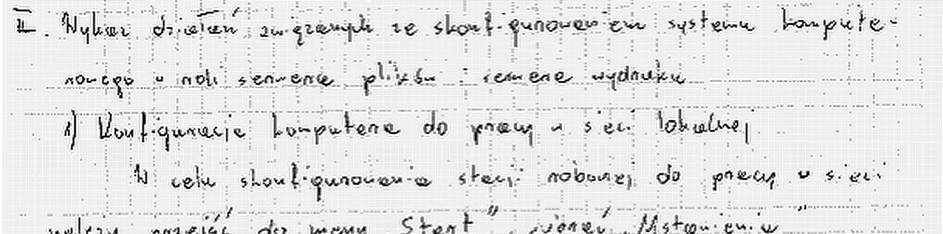 II. Wykaz działań związanych ze skonfigurowaniem systemu kompute-
rowego w roli serwera plików i serwera wydruku
1) Konfiguracja komputera do pracy w sieci lokalnej
W celu skonfigurowania stacji roboczej do pracy w sieci
należy przejść do menu Start" Ustawienia"